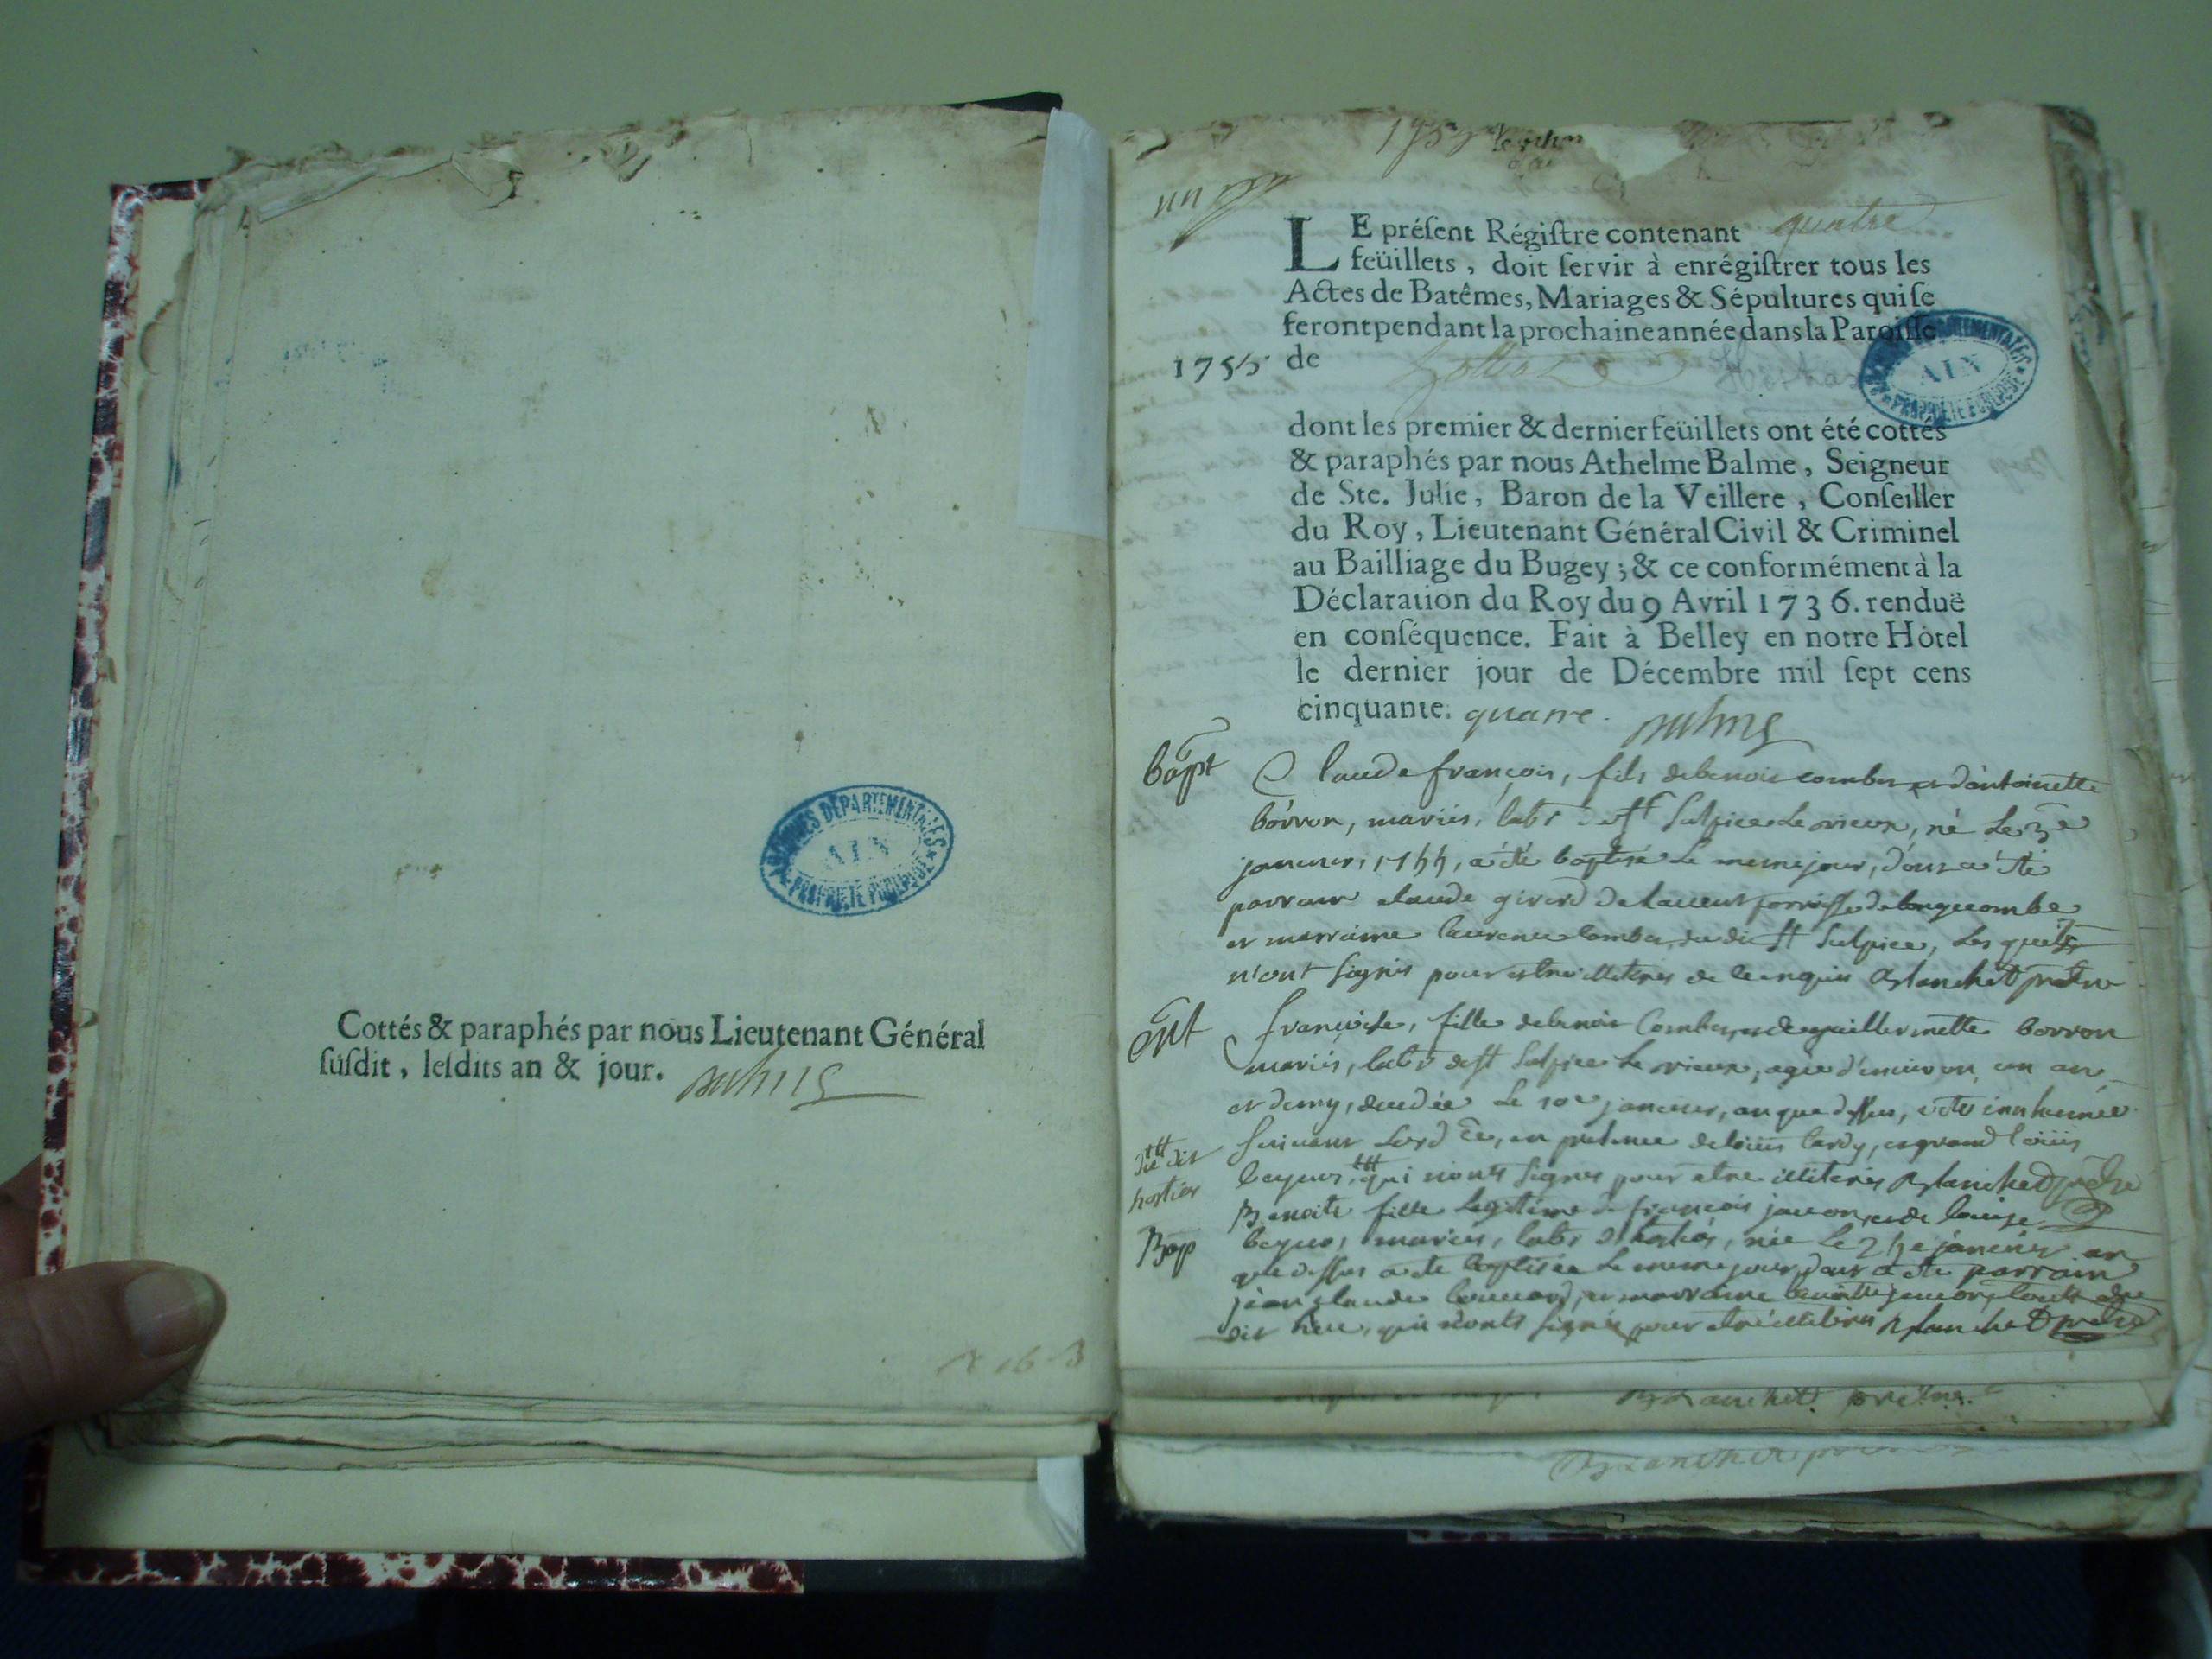 Cottés & paraphés par nous Lieutenant Général
suſdit, leſdits an & jour.
ARCHIVES DÉPARTEMENTALES
AIN
PROPRIÉTÉ PUBLIQUE
un
quatre
LE préſent Régiſtre contenant
feüillets, doit ſervir à enrégiſtrer tous les
Actes de Batêmes, Mariages & Sépultures qui ſe
feront pendant la prochaine année dans la Paroiſſe
1755 de
ARCHIVES DÉPARTEMENTALES
AIN
PROPRIÉTÉ PUBLIQUE
dont les premier & dernier feüillets ont été cottés
& paraphés par nous Athelme Balme, Seigneur
de Ste. Julie, Baron de la Veillere, Conſeiller
du Roy, Lieutenant Général Civil & Criminel
au Bailliage du Bugey; & ce conformément à la
Déclaration du Roy du 9 Avril 1736. renduë
en conſéquence. Fait à Belley en notre Hôtel
le dernier jour de Décembre mil ſept cens
cinquante. quatre.
bapt Claude françois, fils de benoit combet et d'antoinette
borron, mariés, labr de st Sulpice le vieux, né le 3e
janvier, 1755, a été baptisé le meme jour, dont a été
parrain claude girerd de paroisse de longecombe
et marraine laurence combet, du dit st Sulpice, les quels
n'ont signés pour estre illiteres de ce enquis Blanchet prêtre
françoise, fille de benoit Combet, et de guillermette borron
mariés, labr de st Sulpice le vieux, agée d'environ un an
et demy, decedée le 10e janvier, an que dessus, a été innhumée
Suivant en presence de loüis tardy, et grand loüis
qui n'ont signés pour etre illiteres Blanchet prêtre
Bap Benoite fille legitime de françois et de louise
mariés, labr née le 25e janvier an
que dessus a été baptisée le meme jour, dont a été parrain
jean claude et marraine
qui n'onts signés pour etre illiteres Blanchet prêtre
Blanchet prêtre.
Blanchet